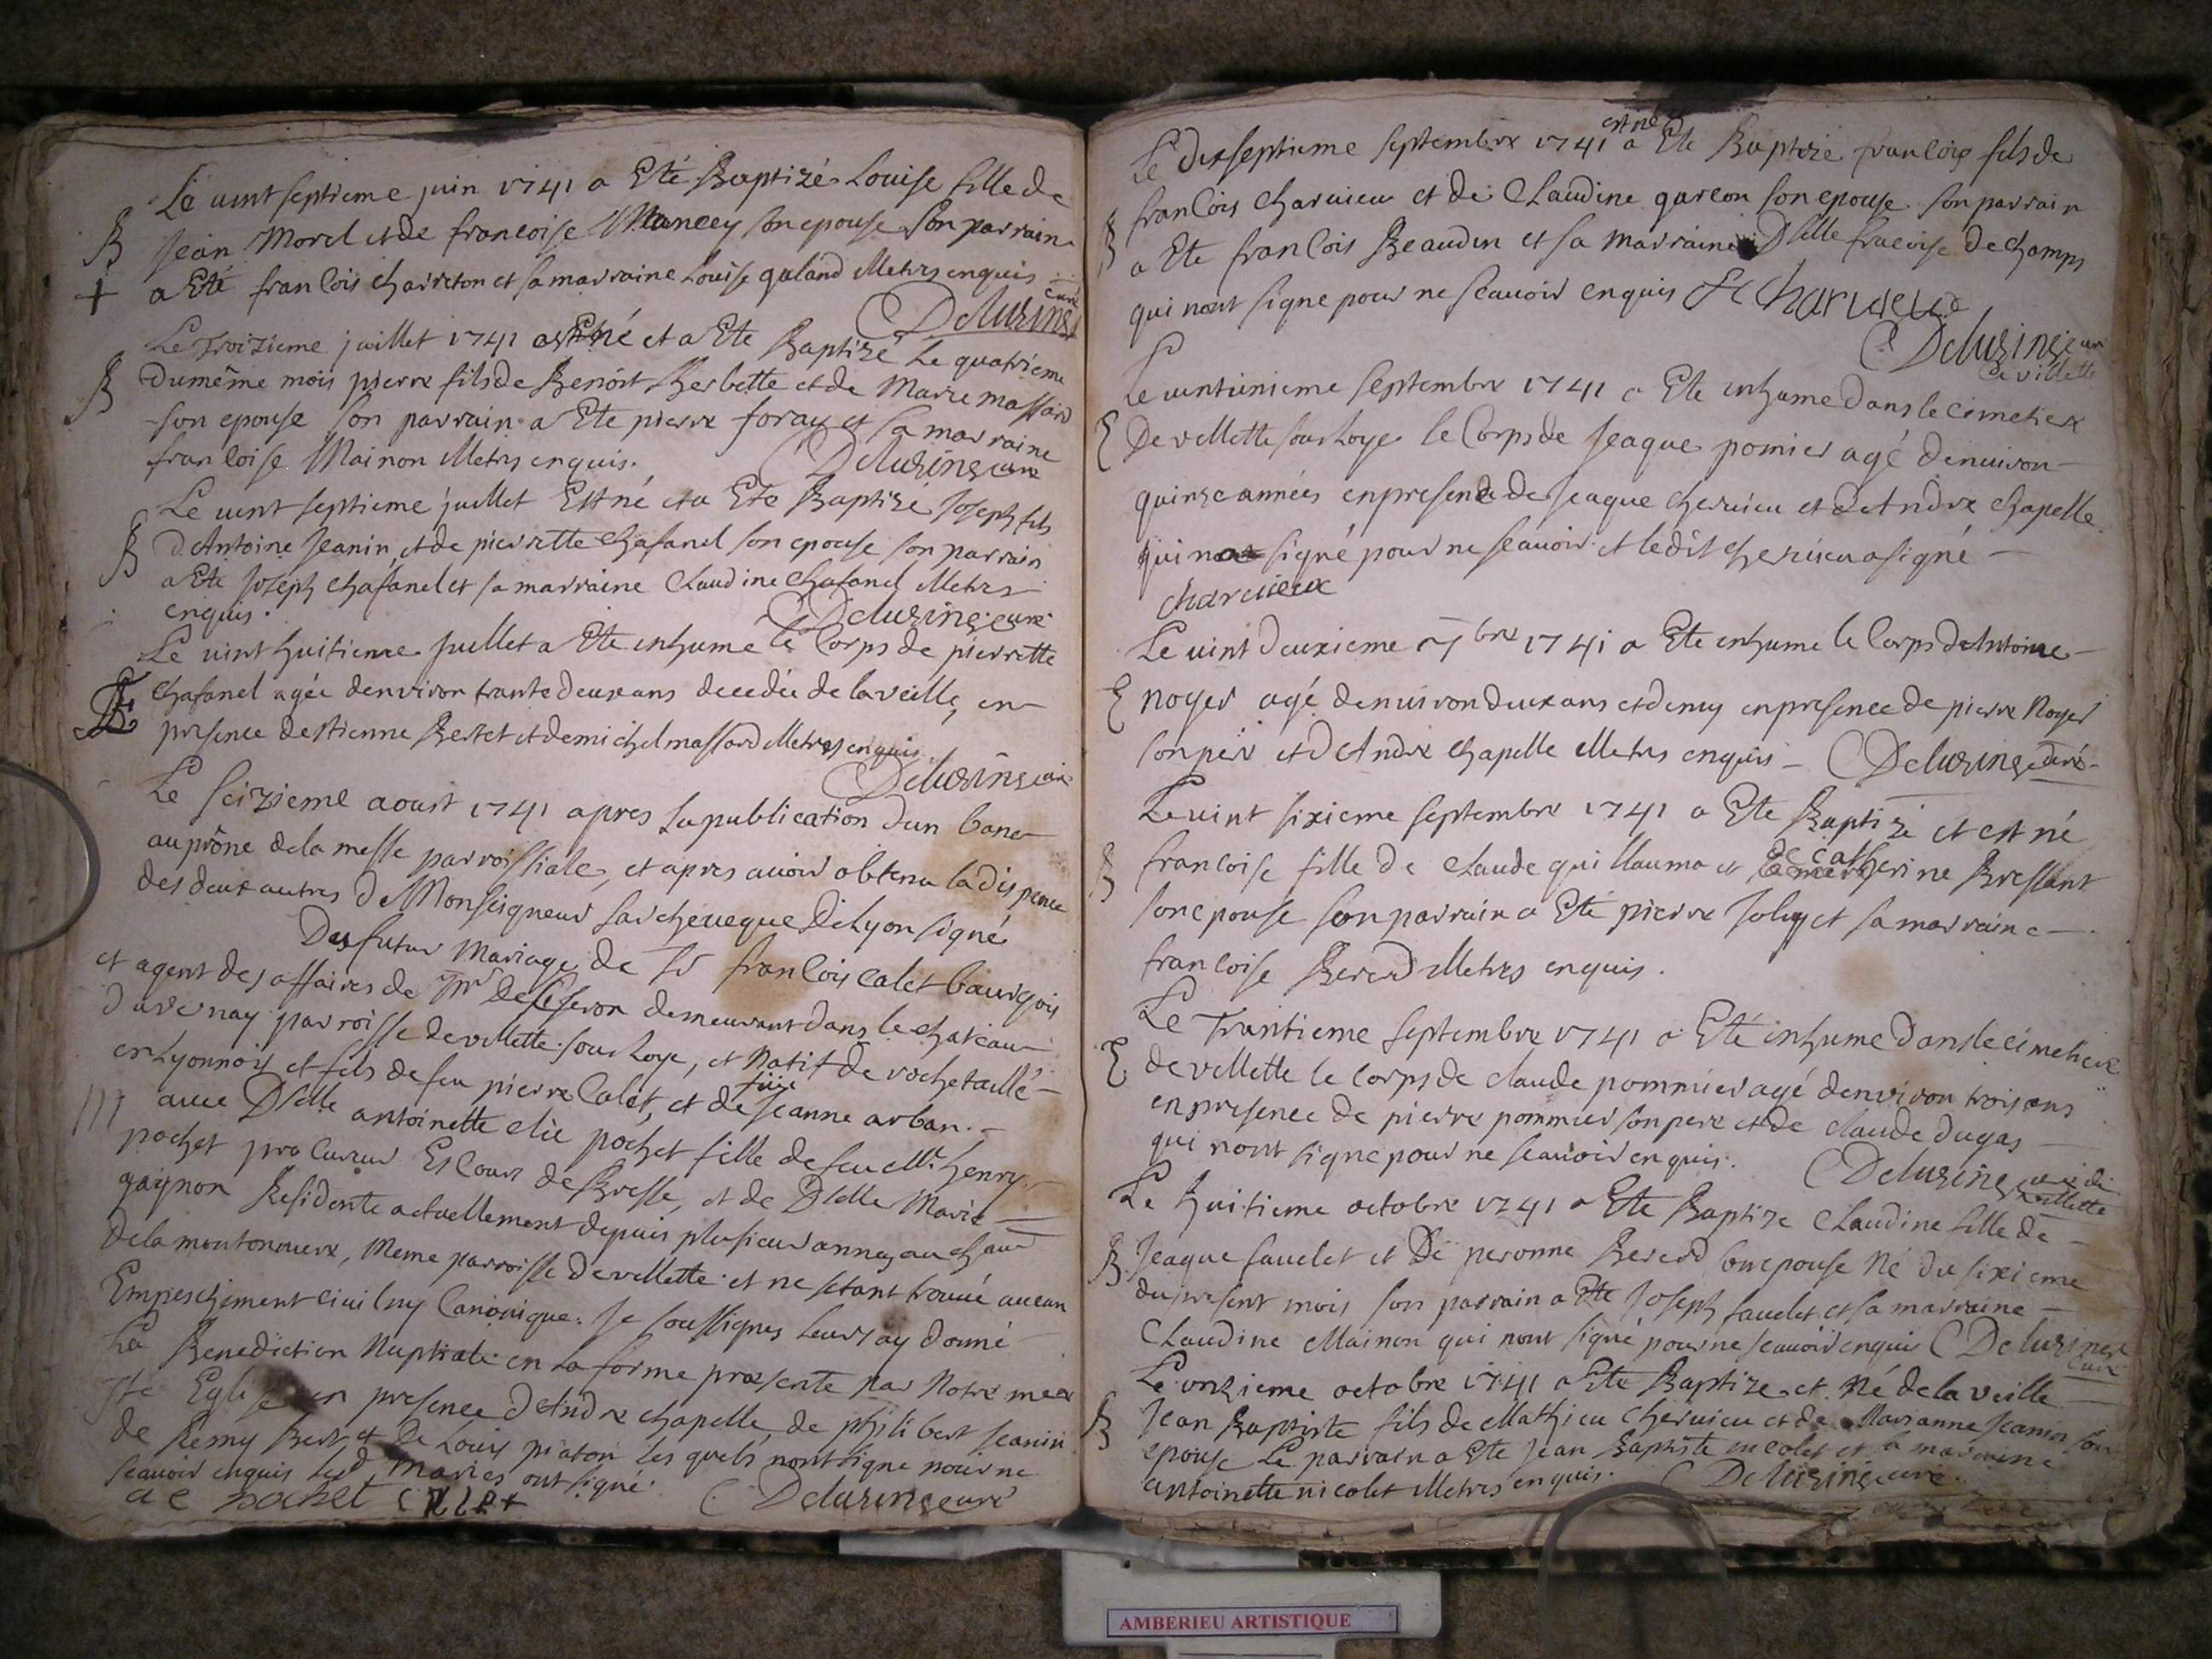 Le uint septieme juin 1741 a Eté Baptizé Louise fille de
B Jean Morel et de francoise Mancey son epouse son parrain
+ a Eté francois charreton et sa marraine Louise galand illetrés enquis
Deluzines curé
Le Troizieme juillet 1741 est né et a Ete Baptizé Le quatrieme
B Du même mois pierre fils de Benoist Berbette et de Marie massard
son epouse son parrain a Ete pierre foray et sa marraine
francoise Mainon illetrés enquis. Deluzines curé
Le uint septieme juillet Est né et a Ete Baptizé Joseph fils
B D'Antoine Jeanin, et de pierrette chafanel son epouse son parrain
a Ete Joseph chafanel et sa marraine Claudine chafanel illetrés
enquis. Deluzines curé
Le uint huitieme Juellet a Ete inhumé le Corps de pierrette
E chafanel agée denviron trante deux ans decedée de la veille, en
presence destienne Bertet et de michel massard illetrés enquis
Deluzines curé
Le seizieme aoust 1741 apres la publication d'un banc
au prône de la messe parroissiale, et apres auoir obtenu la dispence
des deux autres de Monseigneur larcheueque de Lyon signé
Du futur Mariage de Sr francois calet bourgois
et agent des affaires de Mr De seseron demeurant dans le chateau
duvernay parroisse devillette sous Loye, et natif de rochetaillé
en Lyonnois et fils de feu pierre Calet, et de Jeanne arban.
M auec Dlle antoinette elie pochet fille de feu Mr henry
pochet procureur Es Cours de Bresse, et de Dlle Marie
gaignon Residente actuellement depuis plusieur annez au chau
De la moutonniere, meme parroisse devillette et ne setant trouué aucun
Empeschement ciuil ny Canonique. Je soussignes Leurs ay donné
La Benediction Nuptiale en la forme presente par Notre mere
Ste Eglise en presence d'Andre chapelle, de philibert Jeanin
de Remy Bert et De Louis piaton les quels nont signe pour ne
scauoir enquis Lesd mariés ont signé.
a e pochet calet Deluzines curé
est né et
Le dixseptieme septembre 1741 a Ete Baptize francois fils de
B francois charuieu et de Claudine garcon son epouse son parrain
a Ete francois Beaudin et sa marraine Dlle fracoise De champs
qui nont signe pour ne scauoir enquis F Charvieux
Deluzines curé
de villette
Le uintunieme septembre 1741 a Ete inhume Dans le cimetiere
E De villette sous Loye le Corps de Jeaque pomier agé denuiron
quinze années en presence de Jeaque cheruieu et d'Andre chapelle
qui na signé pour ne scauoir et ledit cheruieu a signé
charuieux
Le uint deuxieme 7bre 1741 a Ete inhumé le Corps d'Antoine
E noyer agé denuiron deux ans et demy en presence de pierre Noyer
son pere et d'Andre chapelle illetrés enquis Deluzines curé
Le uint sixieme septembre 1741 a Ete Baptizé et est né
B francoise fille de Claude guillauma et de catherine Bressant
son epouse son parrain a Eté pierre Joly et sa marraine
francoise Bererd illetrés enquis.
Le Trantieme septembre 1741 a Eté inhume Dans le cimetiere
E de villette le corps de claude pommier agé denviron trois ans
en presence de pierre pommier son pere et de claude dugas
qui nont signe pour ne scauoir enquis. Deluzines curé de
villette
Le huitieme octobre 1741 a Ete Baptize Claudine fille de
B Jeaque fauelet et De peronne Bererd son epouse Né du sixieme
du present mois son parrain a Ete Joseph fauelet et sa marraine
Claudine Mainon qui nont signé pour ne scauoir enquis Deluzines
curé
Le onzieme octobre 1741 a Ete Baptize et Né de la veille
B Jean Baptiste fils de Mathieu cheruieu et de Marianne Jeanin son
epouse Le parrain a Ete Jean Baptiste nicolet et la marraine
antoinette nicolet illetrés enquis. Deluzines curé.
AMBERIEU ARTISTIQUE